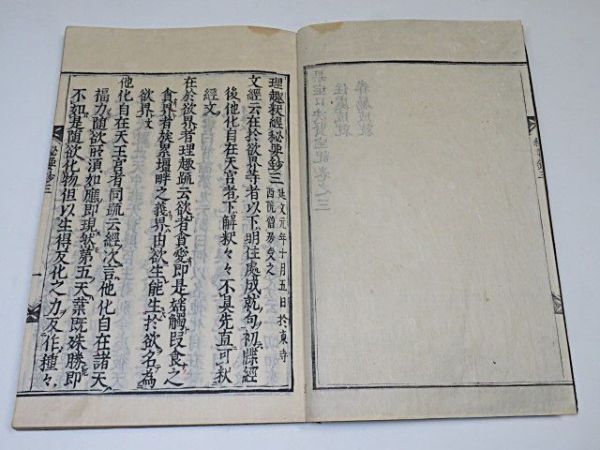 理趣釈経秘要鈔三 延文元年十月五日於東寺西院僧房受之
文經云在於欲界等者以下明住處成就句初牒經
後他化自在天宮者下解釈々々不具先直可釈
經文
在於欲界者理趣疏云欲者貪愛即是婬觸段食之
貪界者族畧壃畔之義界由欲生能生於欲名為
欲界文
他化自在天王宮者同疏云經次言他化自在諸天
福力隨欲所須如應即現然第五天葉既殊勝即
不如是隨欲化物但以生得反化之力反作種々
秘要鈔三
一